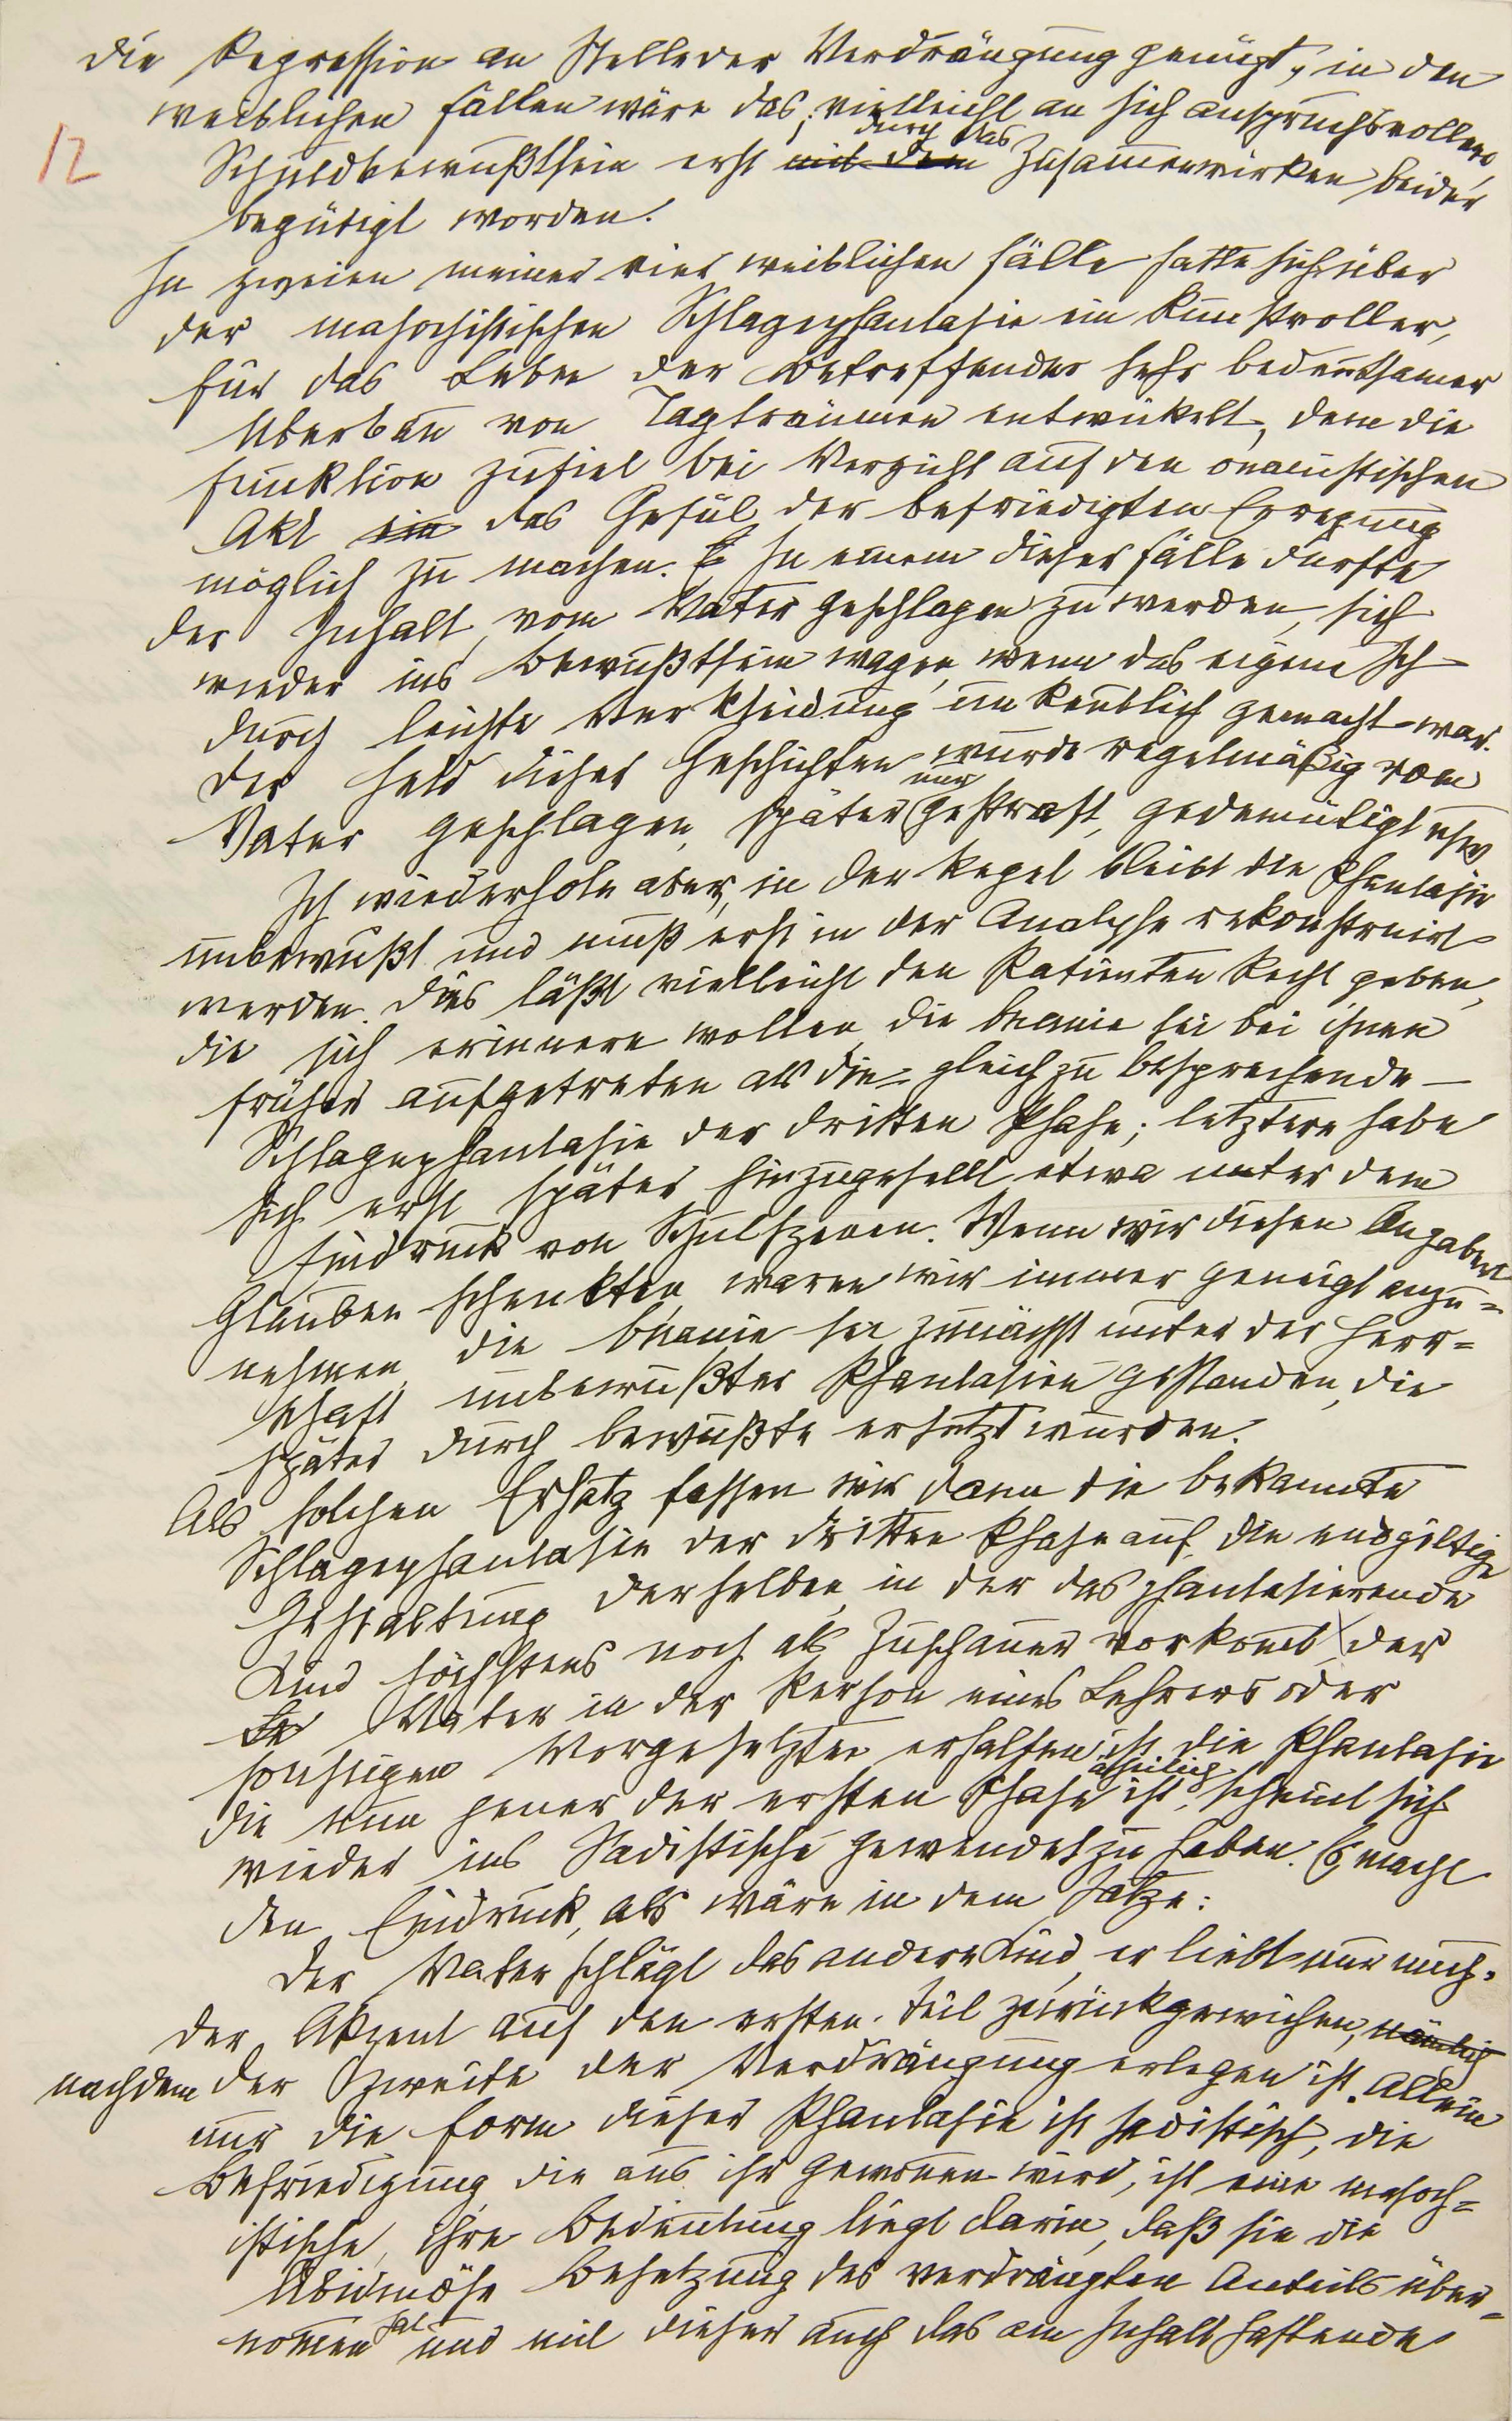 die Regression an Stelle der Verdrängung genügt, in den
weiblichen Fällen wäre das, vielleicht an sich anspruchsvollere,
12
Schuldbewußtsein erst mit dem durch das Zusammenwirken beider
begütigt worden.
In zweien meiner vier weiblichen Fälle hatte sich über
der masochistischen Schlagephantasie ein kunstvoller,
für das Leben der Betreffenden sehr bedeutsamer
Überbau von Tagträumen entwickelt, dem die
Funktion zufiel bei Verzicht auf den onanistischen
Akt ein das Gefül der befriedigten Erregung
möglich zu machen. E In einem dieser Fälle durfte
der Inhalt, vom Vater geschlagen zu werden, sich
wieder ins Bewußtsein wagen, wenn das eigene Ich
durch leichte Verkleidung unkenntlich gemacht war.
Der Held dieser Geschichten wurde regelmäßig vom
Vater geschlagen, später nur gestraft, gedemütigt usw
Ich wiederhole aber, in der Regel bleibt die Phantasie
unbewußt und muß erst in der Analyse rekonstruirt
werden. Dies läßt vielleicht den Patienten Recht geben,
die sich erinnern wollen, die Onanie sei bei ihnen
früher aufgetreten als die – gleich zu besprechende –
Schlagephantasie der dritten Phase; letztere habe
sich erst später hinzugesellt etwa unter dem
Eindruck von Schulszenen. Wenn wir diesen Angaben
Glauben schenkten, waren wir immer geneigt anzu=
nehmen, die Onanie sei zunächst unter der Herr=
schaft unbewußter Phantasien gestanden, die
später durch bewußte ersetzt wurden.
Als solchen Ersatz fassen wir dann die bekannte
Schlagephantasie der dritten Phase auf, die endgiltige
Gestaltung derselben, in der das phantasierende
Kind höchstens noch als Zuschauer vorkomt, der
Vater in der Person eines Lehrers oder
sonstigen Vorgesetzten erhalten ist. Die Phantasie
die nun jener der ersten Phase ähnlich ist, scheint sich
wieder ins Sadistische gewendet zu haben. Es macht
den Eindruck, als wäre in dem Satze:
Der Vater schlägt das andere Kind, er liebt nur mich,
der Akzent auf den ersten Teil zurückgewichen, nämlich
nachdem der zweite der Verdrängung erlegen ist. Allein
nur die Form dieser Phantasie ist sadistisch, die
Befriedigung, die aus ihr gewonnen wird, ist eine masoch=
istische, ihre Bedeutung liegt darin, daß sie die
libidinöse Besetzung des verdrängten Anteils über=
nomen hat und mit dieser auch das am Inhalt haftende